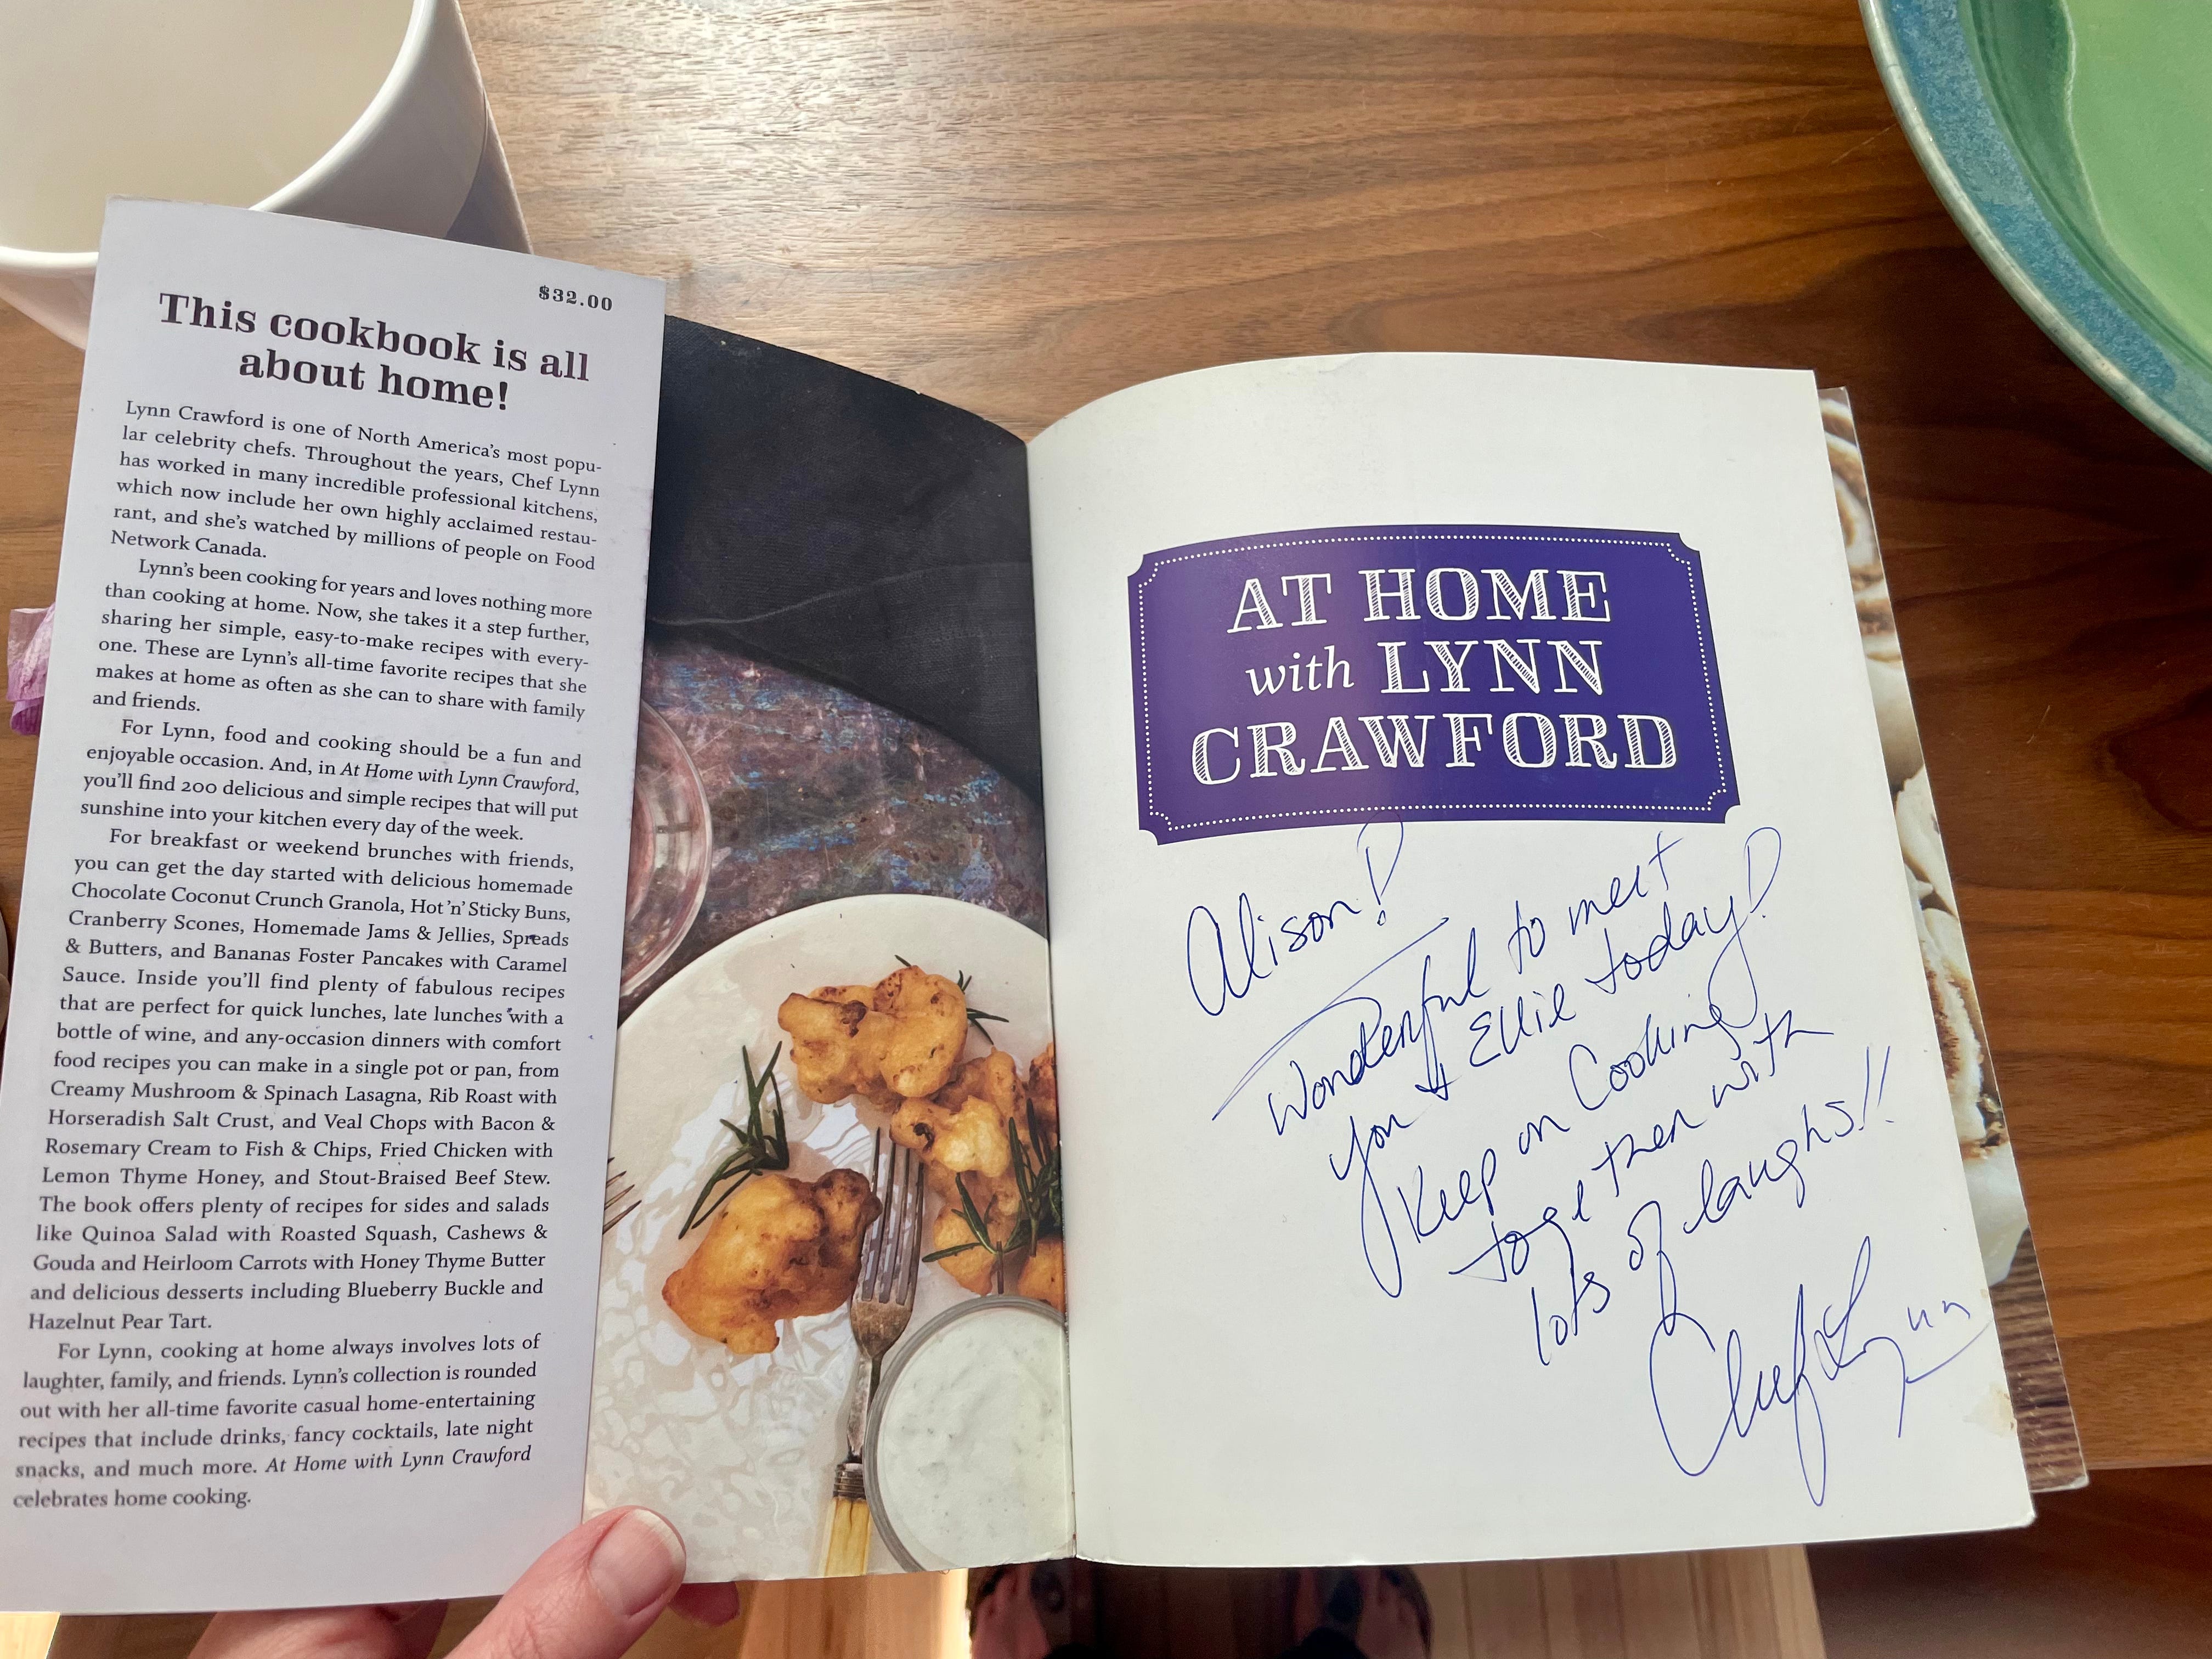 $32.00
This cookbook is all
about home!
Lynn Crawford is one of North America's most popu-
lar celebrity chefs. Throughout the years, Chef Lynn
has worked in many incredible professional kitchens,
which now include her own highly acclaimed restau-
rant, and she's watched by millions of people on Food
Network Canada.
Lynn's been cooking for years and loves nothing more
than cooking at home. Now, she takes it a step further,
sharing her simple, easy-to-make recipes with every-
one. These are Lynn's all-time favorite recipes that she
makes at home as often as she can to share with family
and friends.
For Lynn, food and cooking should be a fun and
enjoyable occasion. And, in At Home with Lynn Crawford,
you'll find 200 delicious and simple recipes that will put
sunshine into your kitchen every day of the week.
For breakfast or weekend brunches with friends,
you can get the day started with delicious homemade
Chocolate Coconut Crunch Granola, Hot 'n' Sticky Buns,
Cranberry Scones, Homemade Jams & Jellies, Spreads
& Butters, and Bananas Foster Pancakes with Caramel
Sauce. Inside you'll find plenty of fabulous recipes
that are perfect for quick lunches, late lunches with a
bottle of wine, and any-occasion dinners with comfort
food recipes you can make in a single pot or pan, from
Creamy Mushroom & Spinach Lasagna, Rib Roast with
Horseradish Salt Crust, and Veal Chops with Bacon &
Rosemary Cream to Fish & Chips, Fried Chicken with
Lemon Thyme Honey, and Stout-Braised Beef Stew.
The book offers plenty of recipes for sides and salads
like Quinoa Salad with Roasted Squash, Cashews &
Gouda and Heirloom Carrots with Honey Thyme Butter
and delicious desserts including Blueberry Buckle and
Hazelnut Pear Tart.
For Lynn, cooking at home always involves lots of
laughter, family, and friends. Lynn's collection is rounded
out with her all-time favorite casual home-entertaining
recipes that include drinks, fancy cocktails, late night
snacks, and much more. At Home with Lynn Crawford
celebrates home cooking.
AT HOME
with LYNN
CRAWFORD
Alison!
Wonderful to meet
you & Ellie today!
Keep on Cooking
together with
lots of laughs!!
Chef Lynn